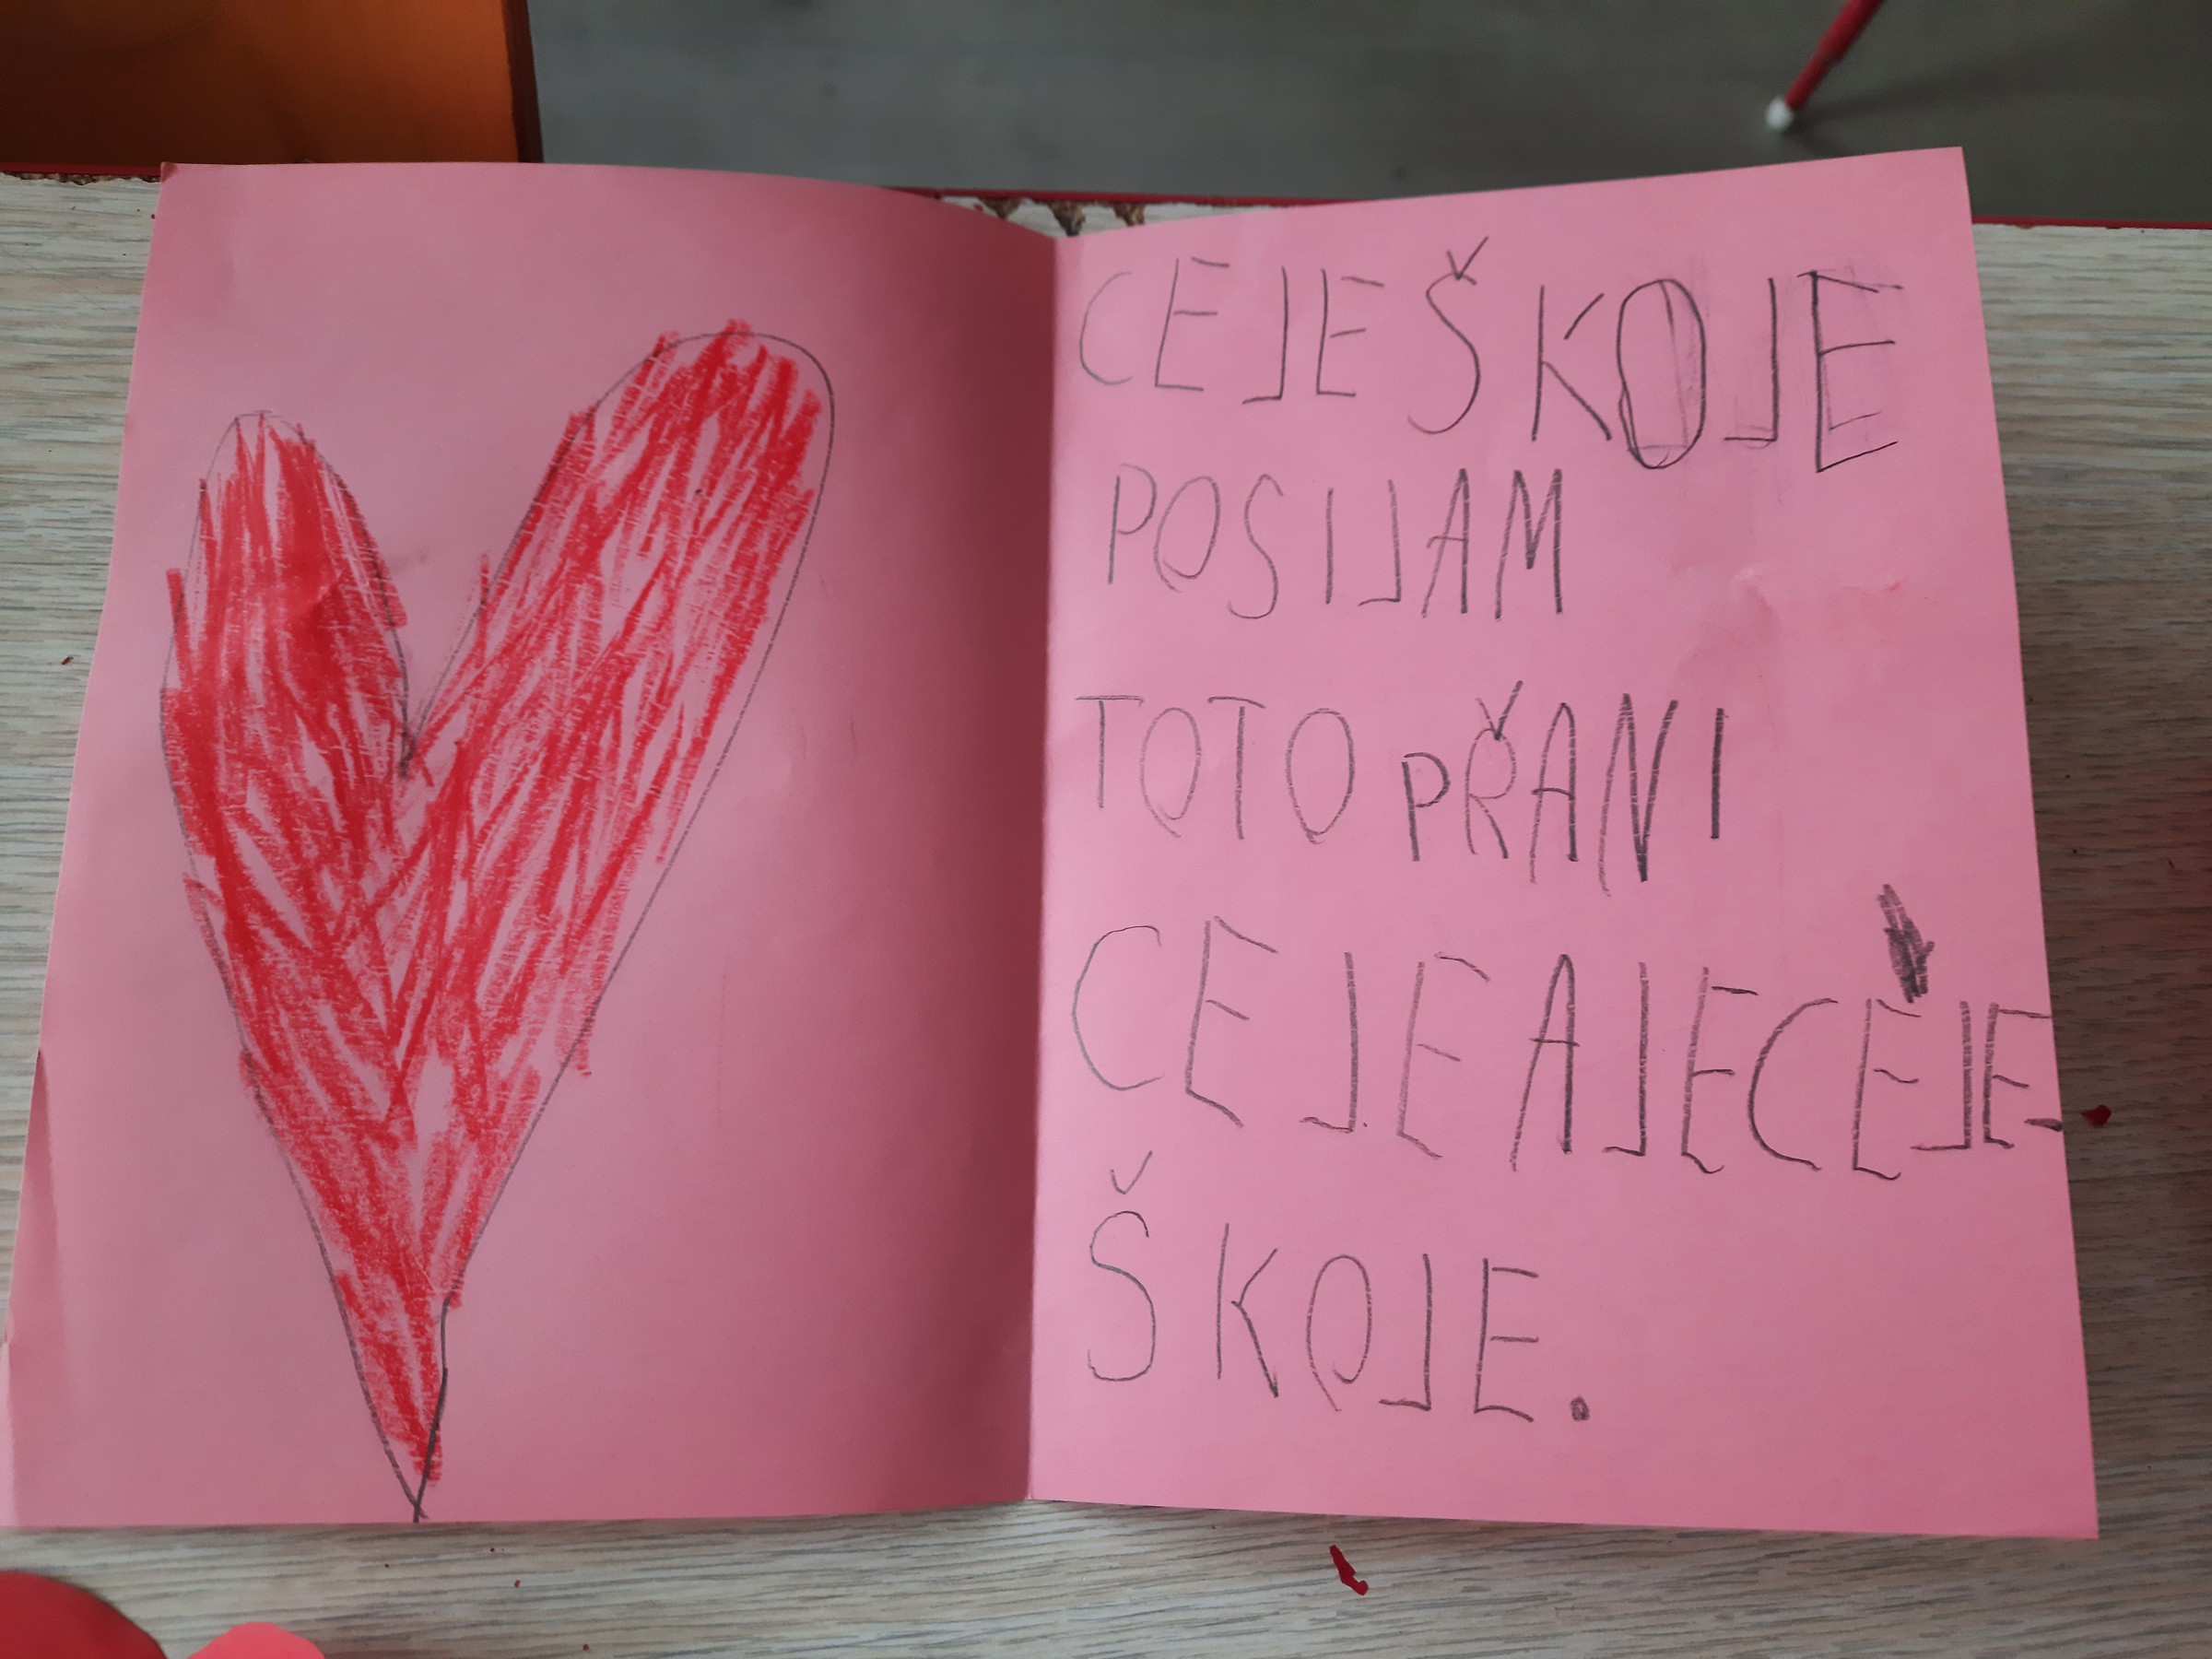 CEJE ŠKOJE
POSIJAM
TOTO PŘANI
CEJE AJE CEJE.
ŠKOJE.